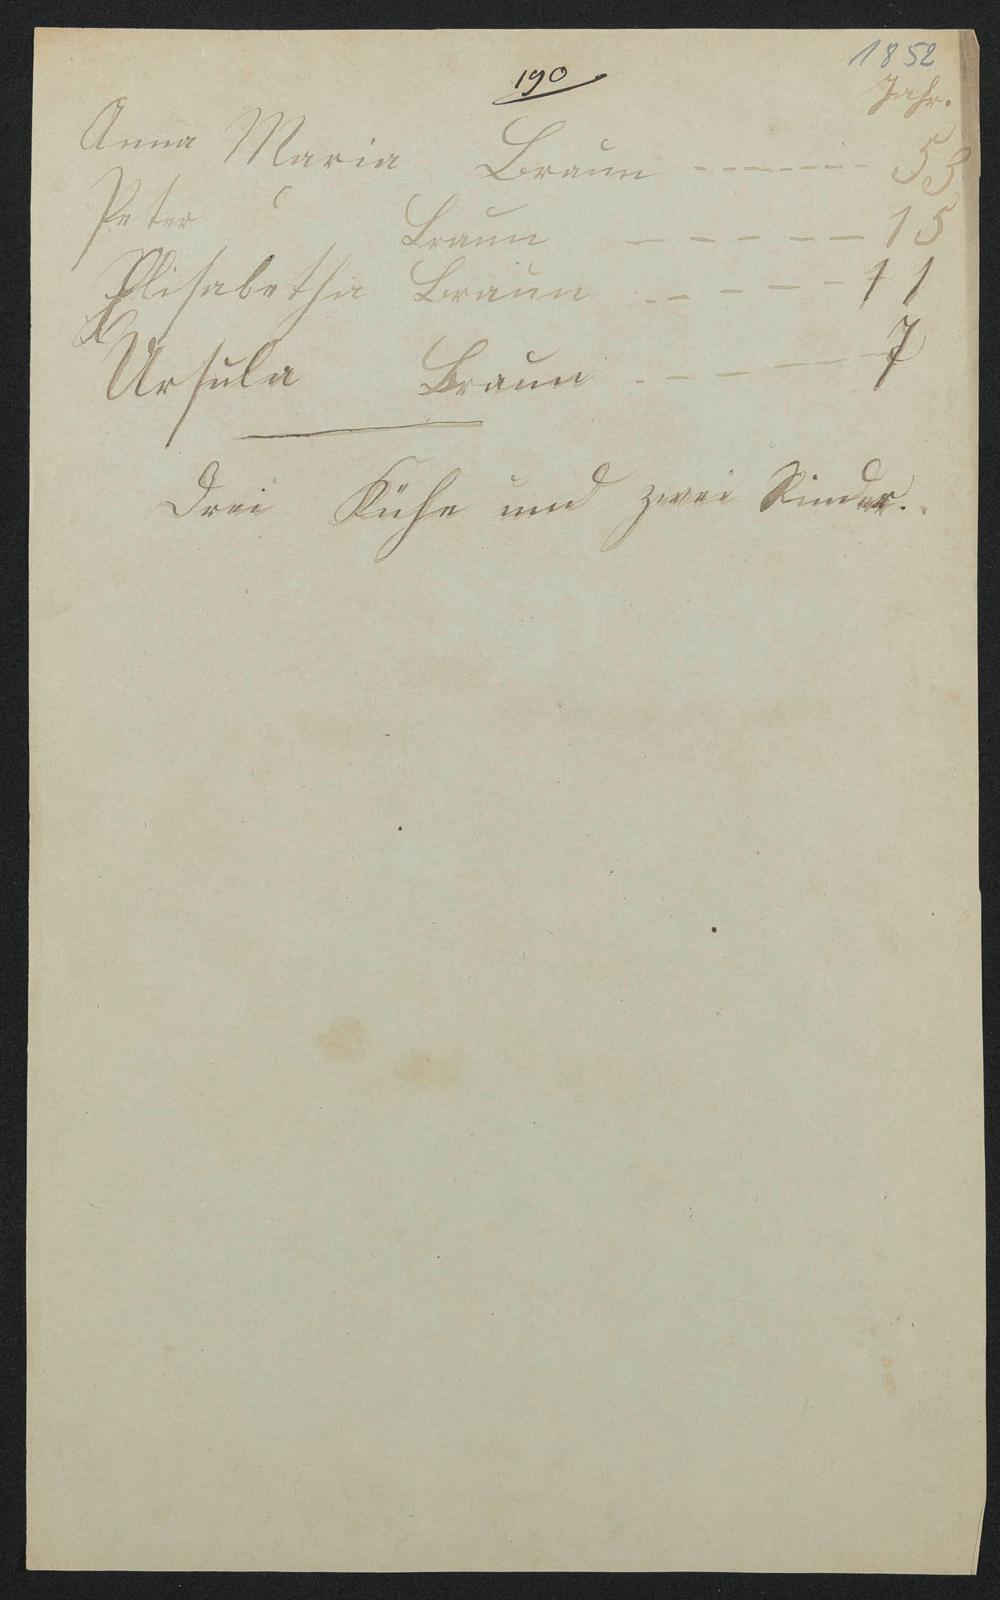 1852
190
Jahr.
Anna Maria Braun ------- 53
Peter Braun ------ 15
Elisabetha Braun ------ 11
Ursula Braun ----- 7
Drei Kühe und zwei Rinder.